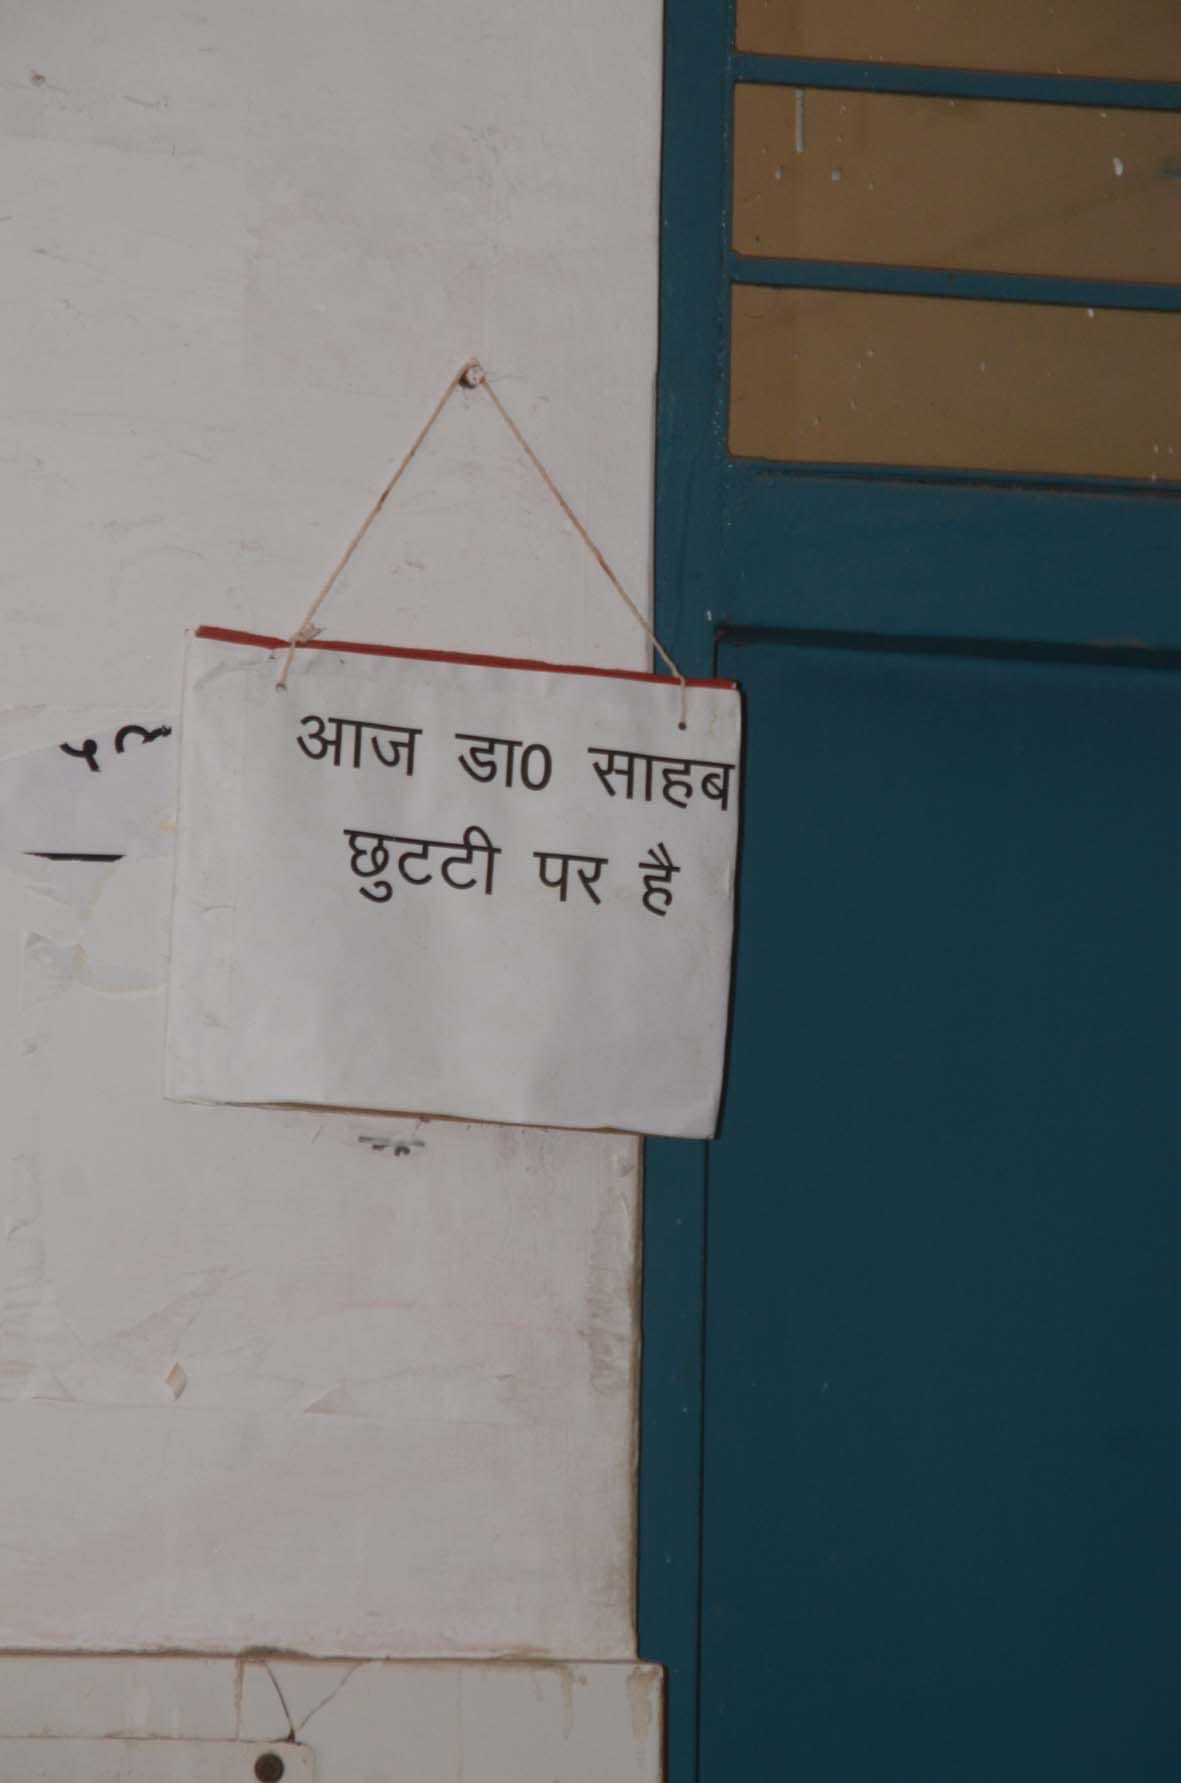 आज डा0 साहब
छुटटी पर है